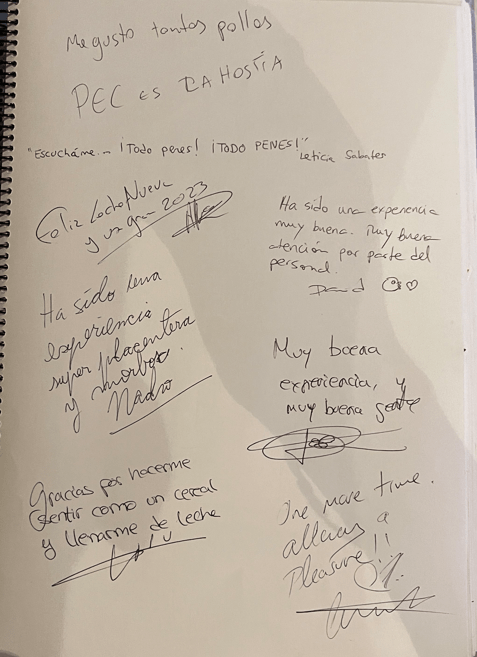 Me gusto tantas pollas
PEC es LA HOSTIA
"Escucháme... ¡Todo penes! ¡TODO PENES!"
Leticia Sabater
Feliz Leche Nueva
y un gran 2023
Ha sido una experiencia
muy buena. Muy buena
atención por parte del
personal.
David
Ha sido una
experiencia
super placentera
y morbosa.
Nacho
Muy buena
experiencia, y
muy buena gente
Gracias por hacerme
sentir como un cereal
y llenarme de leche
One more time.
allways a
Pleasure!!